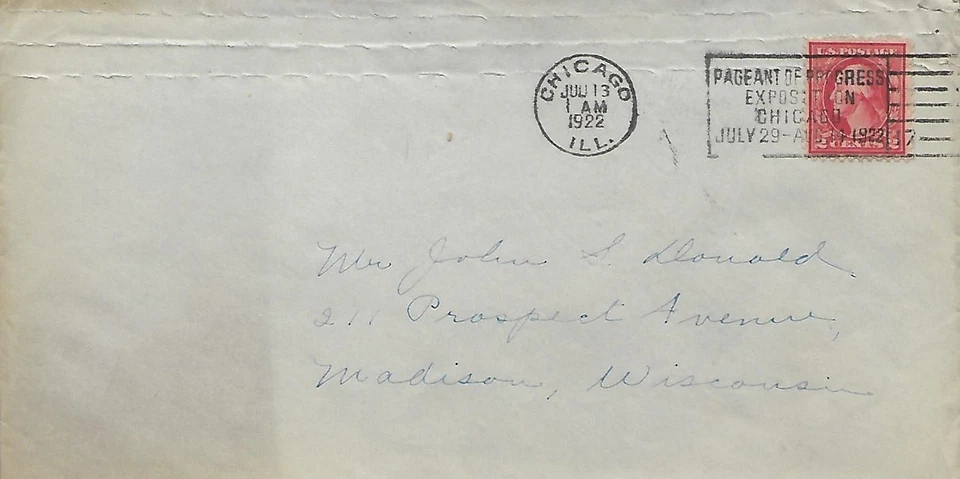 CHICAGO
JUL 13
1 AM
1922
ILL.
PAGEANT OF PROGRESS
EXPOSITION
CHICAGO
JULY 29-AUG 14 1922
U.S. POSTAGE
2 CENTS 2
Mr John S. Donald
211 Prospect Avenue,
Madison, Wisconsin